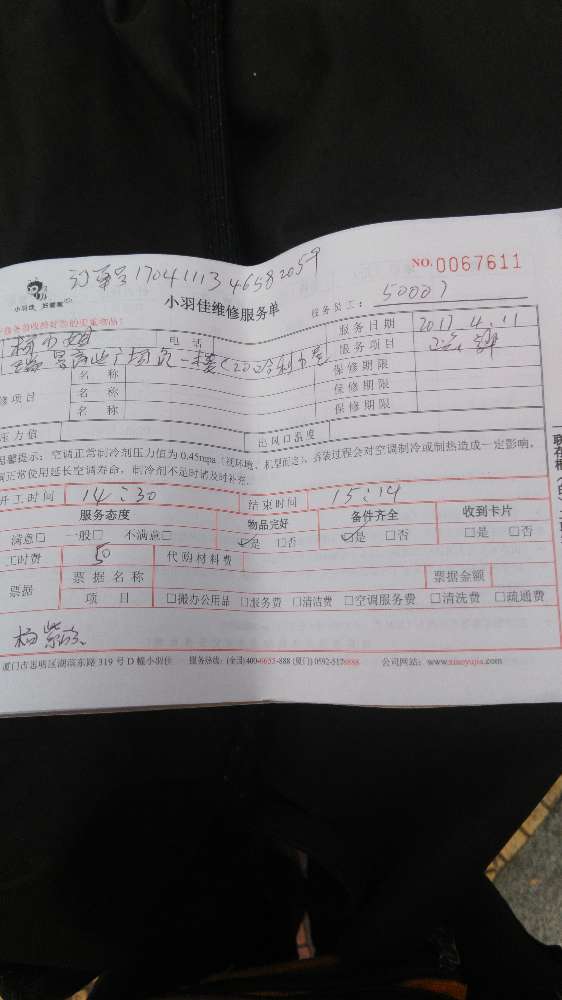 订单号 1704111346582059
NO. 0067611
小羽佳 好管家
小羽佳维修服务单
服务员工: 50007
服务日期 2017.4.11
电话
服务项目
名称
保修期限
修项目 名称
保修期限
名称
保修期限
压力值
出风口温度
温馨提示:空调正常制冷剂压力值为0.45mpa(视环境、机型而定),拆装过程会对空调制冷或制热造成一定影响,
正常使用延长空调寿命,制冷剂不足时需及时补充。
开工时间 14:30 结束时间 15:14
服务态度 物品完好 备件齐全 收到卡片
满意□ 一般□ 不满意□ ☑是 □否 ☑是 □否 □是 □否
工时费 50 代购材料费
票据 票据名称 票据金额
项目 □搬办公用品 □服务费 □清洁费 □空调服务费 □清洗费 □疏通费
厦门市思明区湖滨东路319号D幢小羽佳 服务热线:(全国)400-6655-888 (厦门)0592-5178888 公司网站:www.xiaoyujia.com